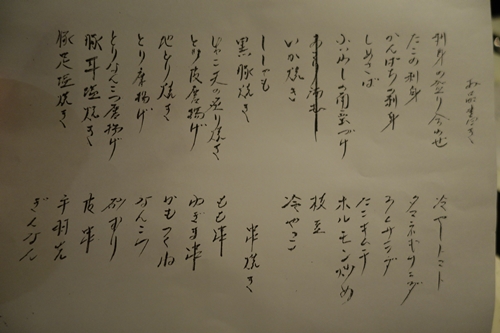 刺身の盛り合わせ
たこの刺身
かんぱちの刺身
しめさば
いわしの南蛮づけ
いか焼き
ししゃも
黒豚焼き
じゃこ天の炙り焼き
とり皮唐揚げ
地どり焼き
とり唐揚げ
とりなんこつ唐揚げ
豚耳塩焼き
豚足塩焼き
冷やしトマト
タマネギリング
たこキムチ
ホルモン炒め
枝豆
冷やっこ
串焼き
もも串
ねぎま串
かもつくね
なんこつ
砂ずり
皮串
手羽先
ぎんなん